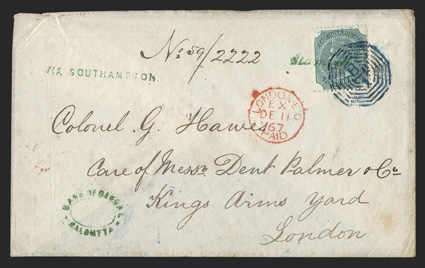 No 59/2222
VIA SOUTHAMPTON
LONDON E.C
EX
DE 11
67
PAID
Colonel G. Hawes
Care of Messrs Dent Palmer & Co
Kings Arms Yard
London
BANK OF BENGAL
CALCUTTA